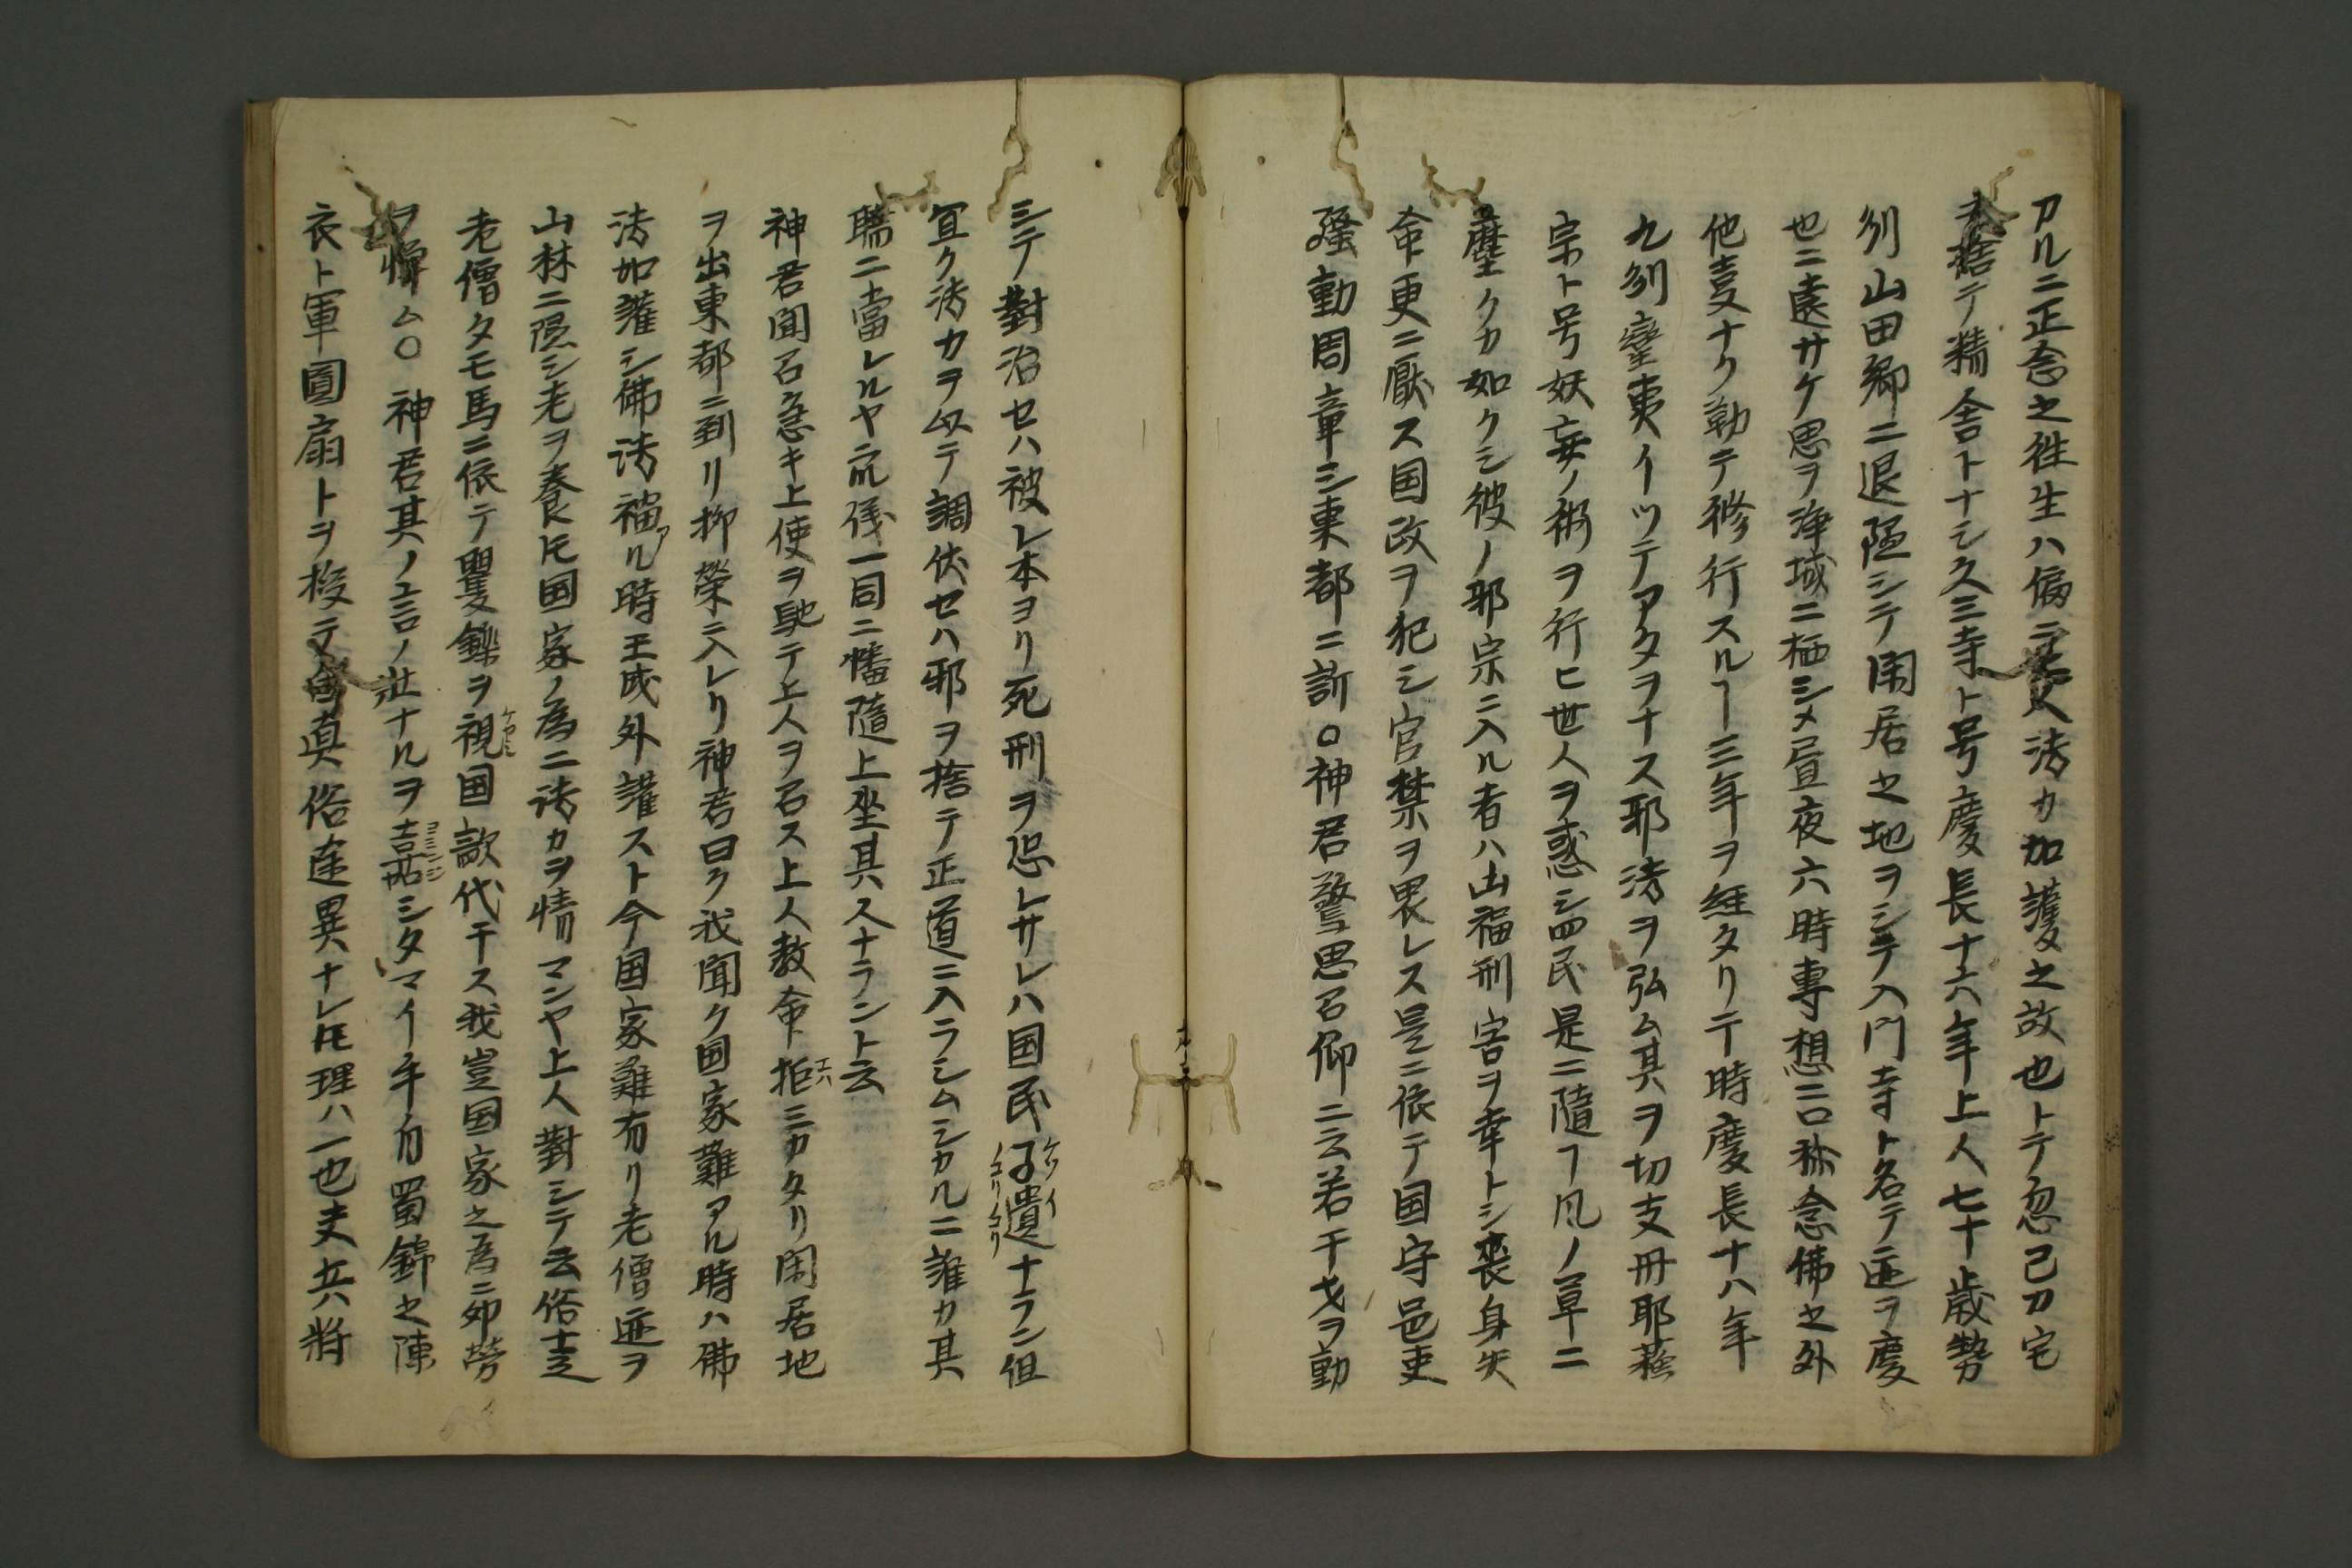 アルニ正念之徃生ハ偏ニ法カ加護之故也トテ忽己カ宅
捨テ精舎トナシ久三寺ト号慶長十六年上人七十歳勢
刕山田郷ニ退隠シテ閑居之地ヲシテ入門寺ト名テ迹ヲ慶
也ニ遠サケ思ヲ浄域ニ栖シメ昼夜六時専想ニ口称念佛之外
他㕝ナク勤テ修行スルヿ三年ヲ経タリテ時慶長十八年
九刕蛮夷イツテアタヲナス耶法ヲ弘ム其ヲ切支丹耶蘇
宗ト号妖妄ノ術ヲ行ヒ世人ヲ惑シ四民是ニ随フ風ノ草ニ
靡クカ如クシ彼ノ邪宗ニ入ル者ハ凶福刑害ヲ幸トシ喪身失
命更ニ厭ス国政ヲ犯シ官禁ヲ畏レス是ニ依テ国守邑吏
騒動周章シ東都ニ訴〇神君驚思召仰ニ云若干戈ヲ動
シテ對治セハ被レ本ヨリ死刑ヲ恐レサレハ国民孑遺ナラン但
宜ク法カヲ以テ調伏セハ邪ヲ捨テ正道ニ入ラシムシカルニ誰カ其
聴ニ當レルヤ衆儀一同ニ幡随上坐其人ナラント云
神君聞召急キ上使ヲ馳テ上人ヲ召ス上人教命拒ミカタリ閑居地
ヲ出東都ニ到リ柳榮ニ入レリ神君曰ク我聞ク国家難アル時ハ佛
法加護シ佛法禍アル時王威外護スト今国家難有リ老僧迹ヲ
山林ニ隠シ老ヲ養トモ国家ノ為ニ法カヲ情マンヤ上人對シテ云俗士之
老僧タモ馬ニ依テ矍鑠ヲ視国歌代干ス我豈国家之為ニ劬労
ヲ憚ム〇 神君其ノ言ノ壮ナルヲ嘉シタマイ手自蜀錦之陣
衣ト軍圓扇トヲ授テ曰真俗途異ナレトモ理ハ一也夫兵将